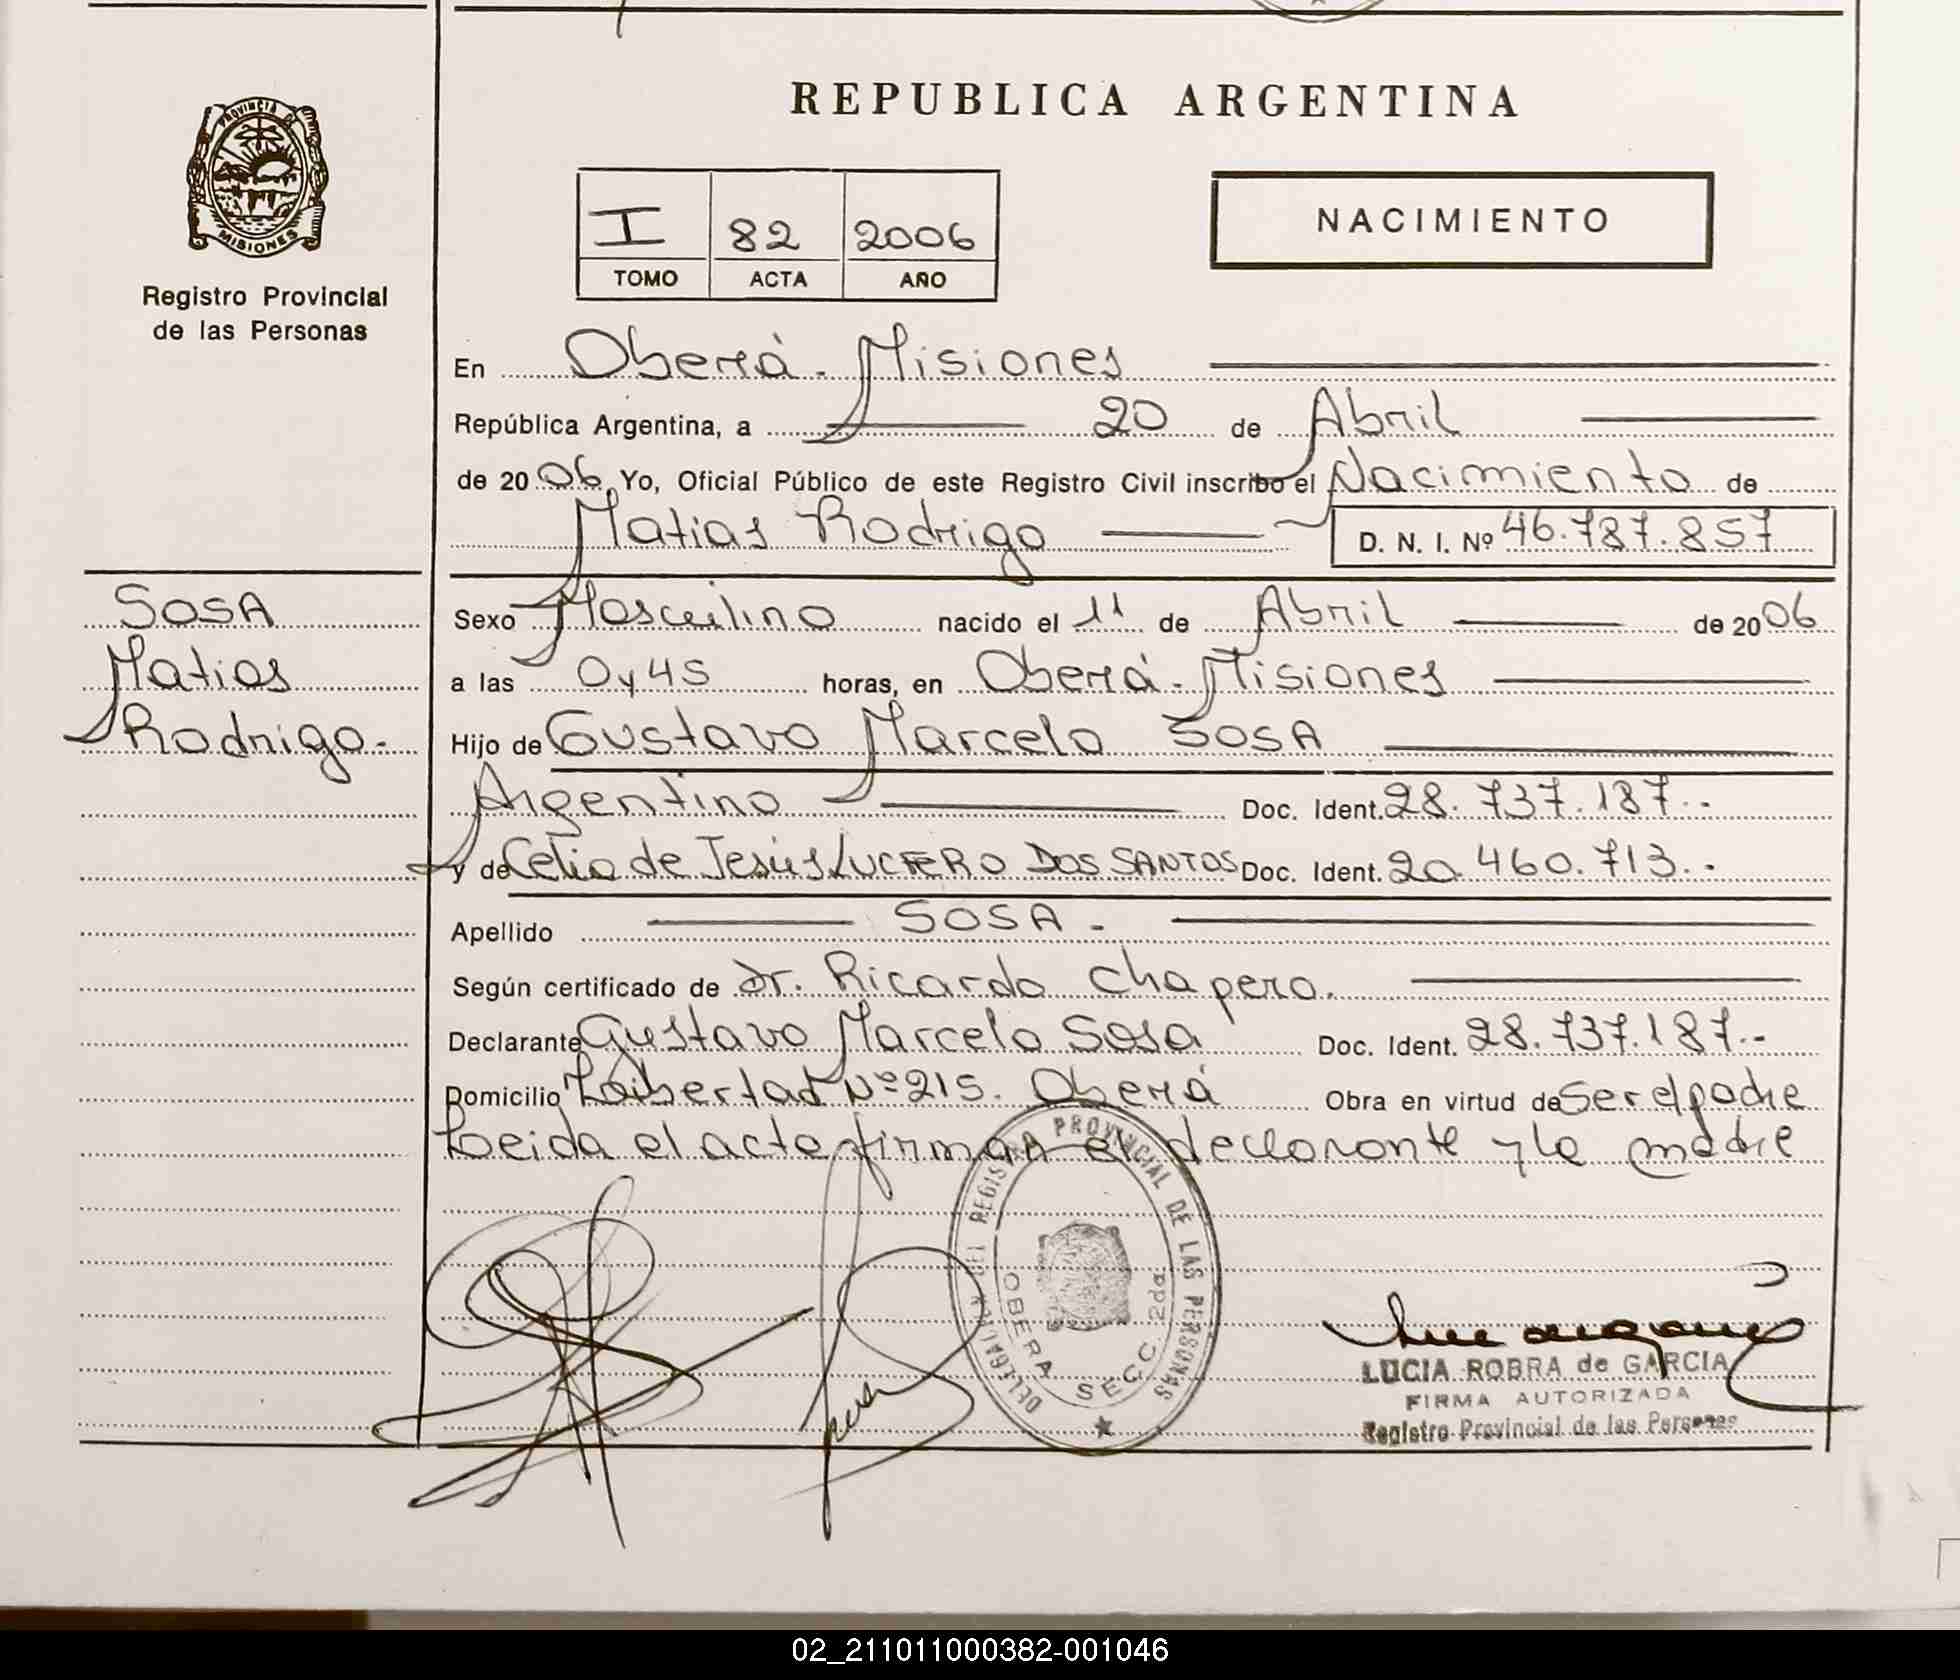 REPUBLICA ARGENTINA
PROVINCIA DE
MISIONES
Registro Provincial
de las Personas
I 82 2006
TOMO ACTA AÑO
NACIMIENTO
En Oberá - Misiones
República Argentina, a 20 de Abril
de 2006 Yo, Oficial Público de este Registro Civil inscribo el Nacimiento de
Matias Rodrigo D. N. I. Nº 46.787.857
SOSA
Matias
Rodrigo.-
Sexo Masculino nacido el 11 de Abril de 2006
a las 0y45 horas, en Oberá - Misiones
Hijo de Gustavo Marcelo SOSA
Argentino Doc. Ident. 28.737.187.-
y de Celia de Jesús LUCERO DOS SANTOS Doc. Ident. 20.460.713.-
Apellido SOSA.-
Según certificado de Dr. Ricardo Chapero.
Declarante Gustavo Marcelo Sosa Doc. Ident. 28.737.187.-
Domicilio Libertad Nº 215. Oberá Obra en virtud de ser el padre
Leida el acta firman el declarante y la madre
DELEGACION DEL REGISTRO PROVINCIAL DE LAS PERSONAS
OBERA SECC. 2da
LUCIA ROBRA de GARCIA
FIRMA AUTORIZADA
Registro Provincial de las Personas
02_211011000382-001046